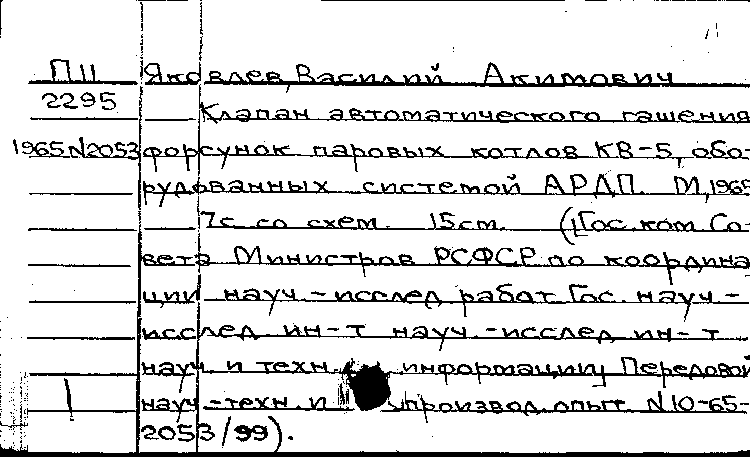 П11 Яковлев, Василий Акимович
2295 Клапан автоматического гашения
1965 N2053 форсунок паровых котлов КВ-5, обо-
рудованных системой АРДП. М, 1965
7с со схем. 15см. (1Гос. ком Со-
вета Министров РСФСР по координа
ции науч-исслед работ. Гос. науч-
исслед ин-т науч-исслед ин-т
науч и техн информации Передовой
науч-техн и производ. опыт. N10-65-
2053/99).